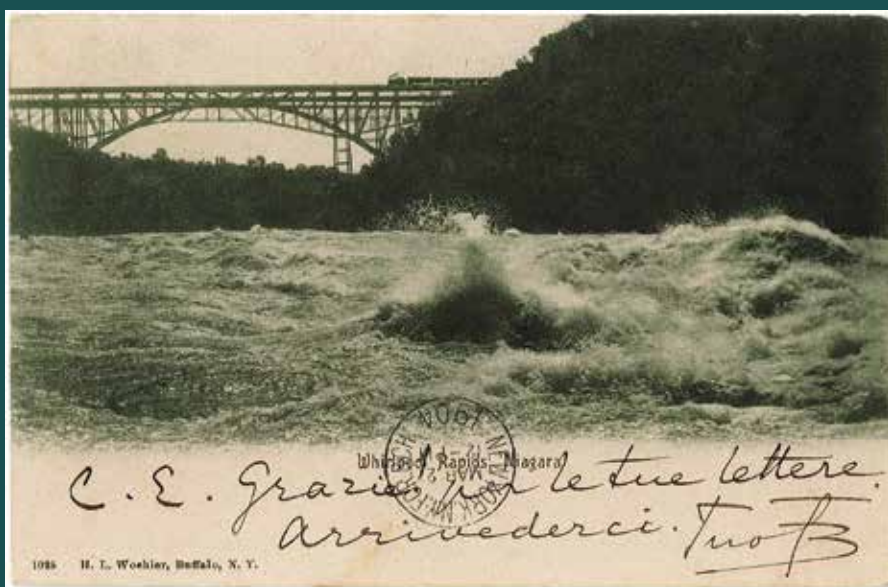 Whirlpool Rapids, Niagara
C. E. Grazie per le tue lettere.
Arrivederci. Tuo
NEW YORK, N.Y.
MAR 2
1025 H. L. Woehler, Buffalo, N. Y.